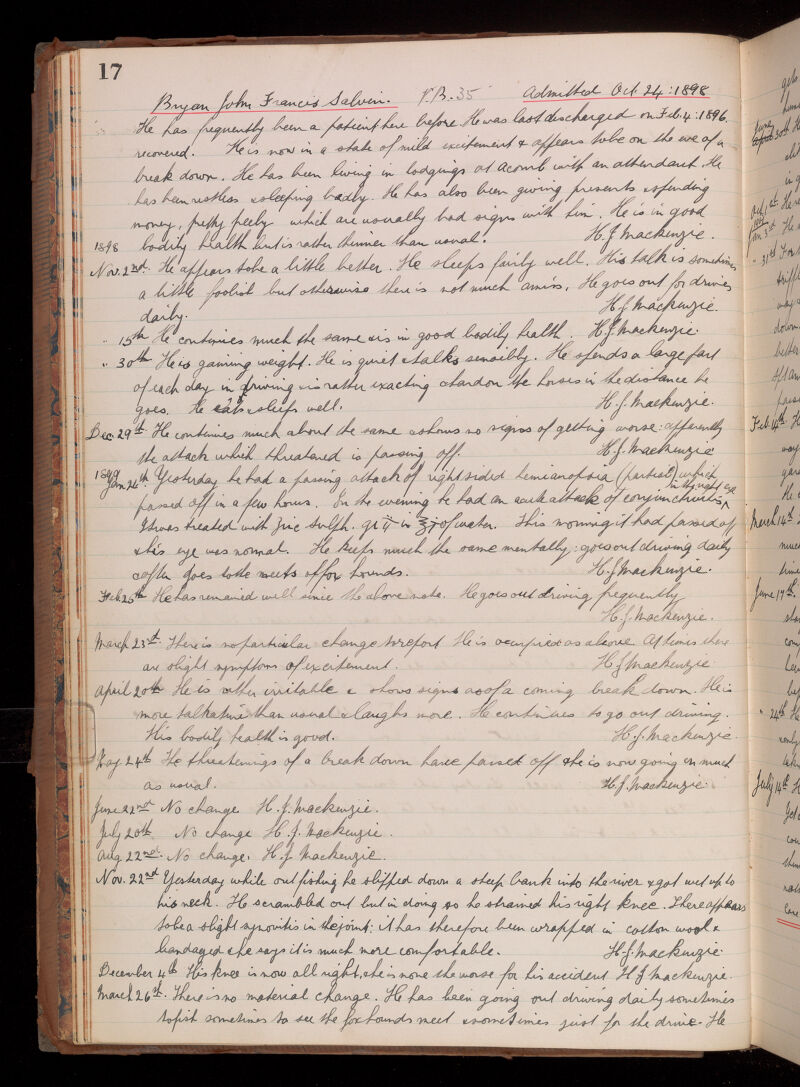 17
Bryan John Francis Salvin. P.B. 35 Admitted Oct. 24: 1898
He has frequently been a patient here before. He was last discharged on Feb. 4: 1896.
recovered. He is now in a state of mild excitement & appears to be on the eve of a
break down. He has been living in lodgings at Acomb with an attendant. He
has been restless & sleeping badly. He has also been giving presents & spending
money, pretty freely which are usually bad signs with him. He is in good
1898 bodily health but is rather thinner than usual. H.J. Mackenzie.
Nov. 2nd. He appears to be a little better. He sleeps fairly well. His talk is sometimes
a little foolish but otherwise there is not much amiss. He goes out for drives
daily. H.J. Mackenzie.
" 15th He continues much the same & is in good bodily health. H.J. Mackenzie.
" 30th He is gaining weight. He is quiet & talks sensibly. He spends a large part
of each day in driving & is rather exacting & hard on the horses in the distance he
goes. He eats & sleeps well. H.J. Mackenzie.
Dec. 29th He continues much about the same & shows no signs of getting worse: apparently
the attack which threatened is passing off. H.J. Mackenzie
1899
Jan 24th Yesterday he had a passing attack of right sided hemianopsia (partial) which
passed off in a few hours. In the evening he had an acute attack of conjunctivitis in the right eye
It was treated with Zinc Sulph. gr ii in ℥i of water. This morning it had passed off
& his eye was normal. He keeps much the same mentally: goes out driving daily
& often goes to the meets of fox hounds. H.J. Mackenzie.
Feb. 25th He has remained well since the above note. He goes out driving frequently
H.J. Mackenzie.
March 23rd. There is no particular change to report. He is occupied as above. At times there
are slight symptoms of excitement. H.J. Mackenzie
April 20th He is rather irritable & shows signs as of a coming break down. He is
more talkative than usual & laughs more. He continues to go out driving.
His bodily health is good. H.J. Mackenzie.
May 24th The threatenings of a break down have passed off & he is now going on much
as usual. H.J. Mackenzie.
June 22nd No change H.J. Mackenzie.
July 20th. No change H.J. Mackenzie.
Aug. 22nd. No change. H.J. Mackenzie.
Nov. 22nd Yesterday while out fishing he slipped down a steep bank into the river & got wet up to
his neck. He scrambled out but in doing so he strained his right knee. There appears
to be a slight synovitis in the joint: it has therefore been wrapped in cotton wool &
bandaged & he says it is much more comfortable. H.J. Mackenzie.
December 4th His knee is now all right, & he is none the worse for his accident H.J. Mackenzie.
March 26th. There is no material change. He has been going out driving daily sometimes
to fish sometimes to see the foxhounds meet & sometimes just for the drive. He